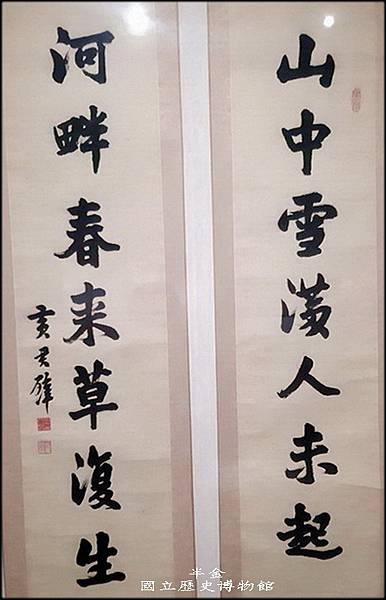 山中雪満人未起
河畔春来草復生
黃君璧
半金
國立歷史博物館